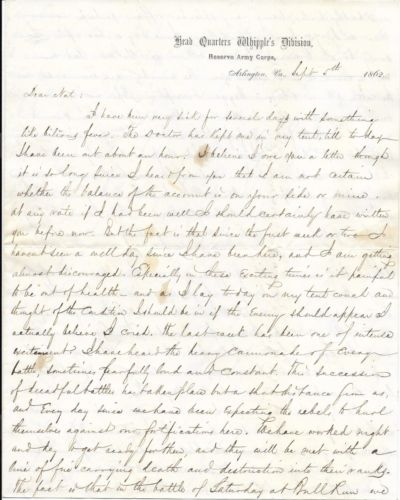 Head Quarters Whipple's Division,
Reserve Army Corps,
Arlington, Va. Sept 5th 1862
Dear Nat:
I have been very sick for several days with something
like bilious fever. The Doctor has kept me in my tent till to-day
I have been out about an hour. I believe I owe you a letter though
it is so long since I heard from you that I am not certain
whether the balance of the account is on your side or mine.
at any rate if I had been well I should certainly have written
you before now. But the fact is that since the first week or two I
havent seen a well day since I have been here, and I am getting
almost discouraged. Especially in these exciting times is it painful
to be out of health — and as I lay to day on my tent couch and
thought of the condition I should be in if the Enemy should appear I
actually believe I cried. The last week has been one of intense
excitement. I have heard the heavy cannonade of every
battle, sometimes fearfully loud and constant. The succession
of dreadful battles has taken place but a short distance from us,
and every day since we have been expecting the rebels to hurl
themselves against our fortifications here. We have worked night
and day to get ready for them, and they will be met with a
line of fire carrying death and destruction into their ranks.
The fact is that in the battle of Saturday at Bull Run we